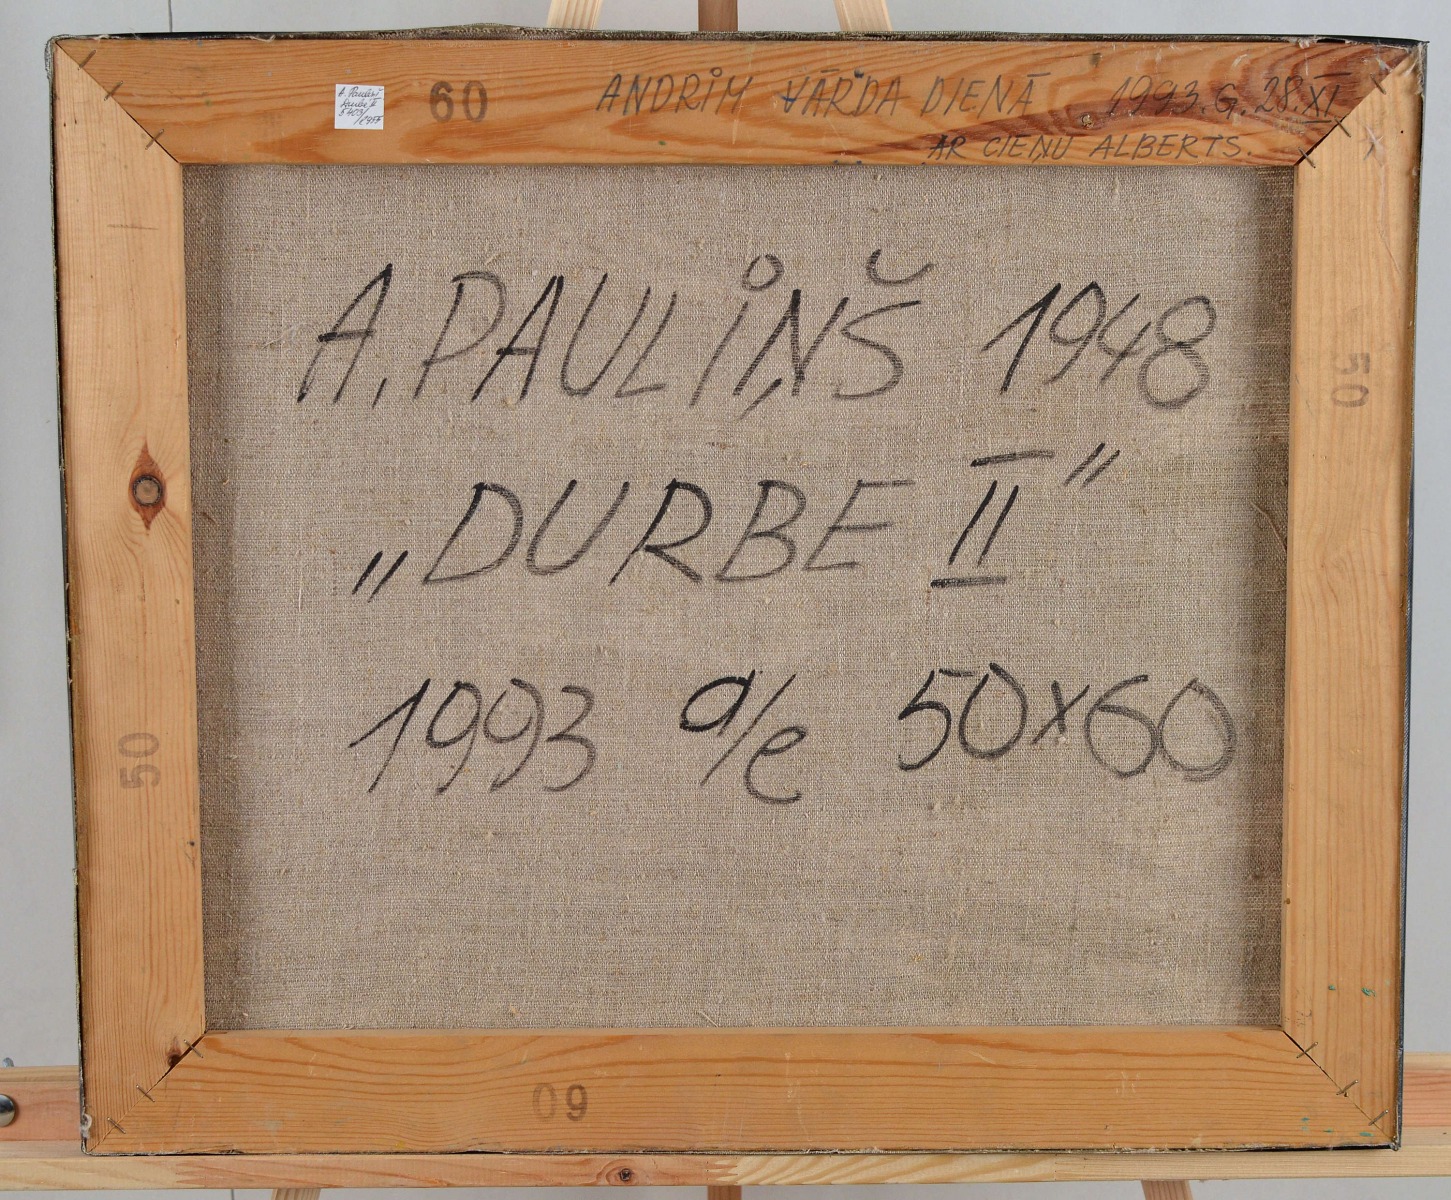 A. Pauliņš
60
ANDRIM VĀRDA DIENĀ 1993.G. 28.XI
AR CIEŅU ALBERTS.
A. PAULIŅŠ 1948
„DURBE II”
1993 a/e 50x60
50
50
60